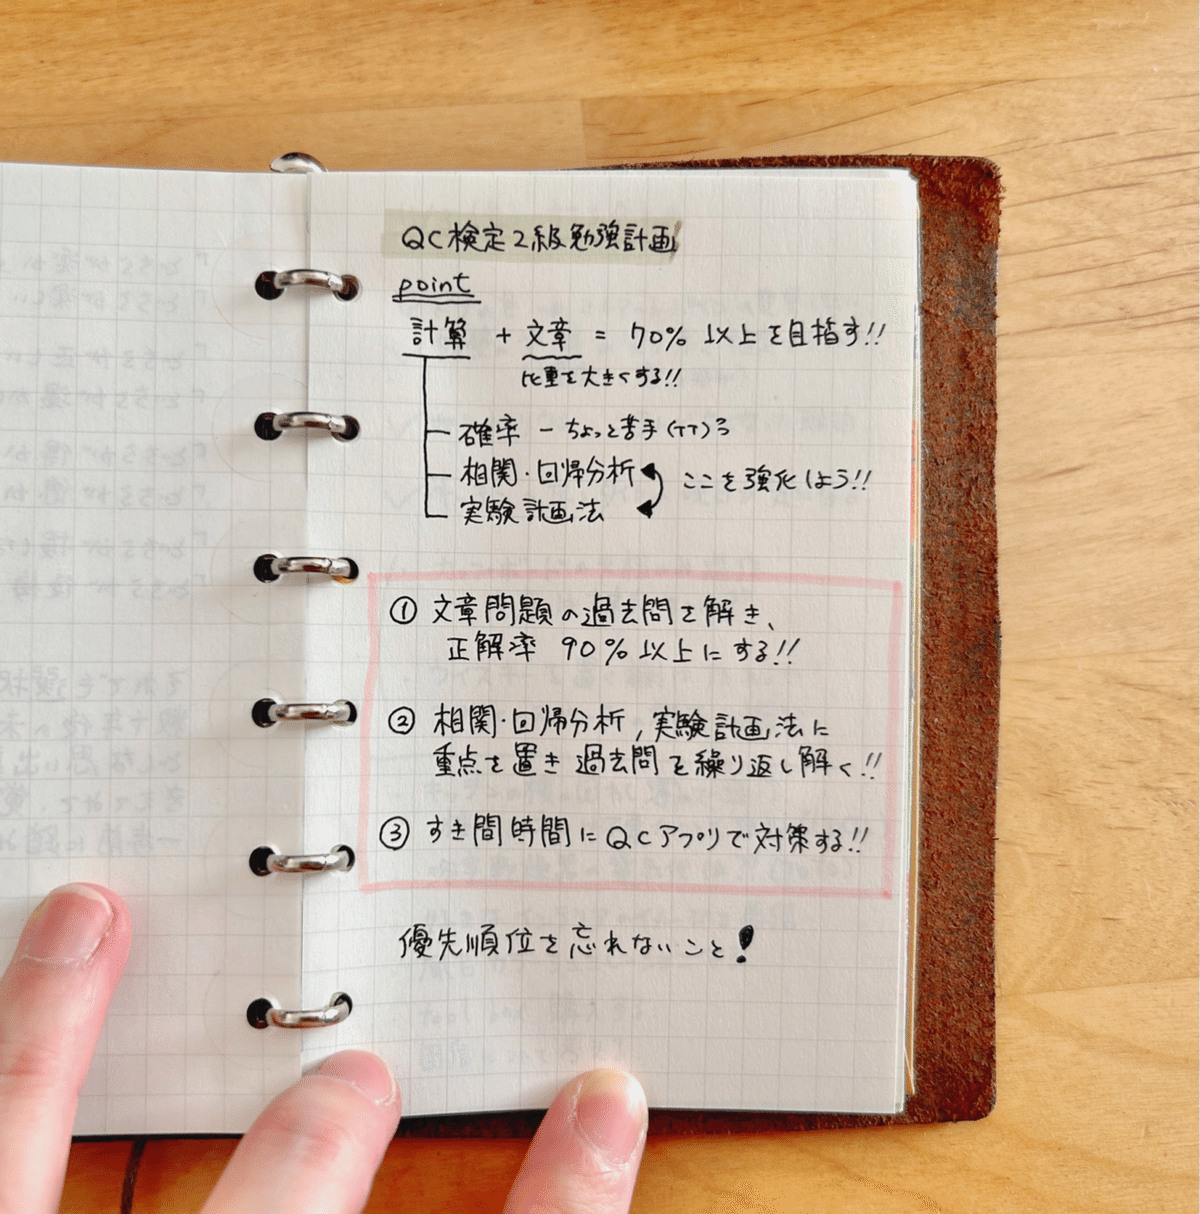 QC検定2級勉強計画
point
計算 + 文章 = 70% 以上を目指す!!
比重を大きくする!!
確率 - ちょっと苦手(TT)ろ
相関・回帰分析 ここを強化しよう!!
実験計画法
① 文章問題の過去問を解き、
正解率 90%以上にする!!
② 相関・回帰分析, 実験計画法に
重点を置き 過去問を繰り返し解く!!
③ すき間時間にQCアプリで対策する!!
優先順位を忘れないこと!